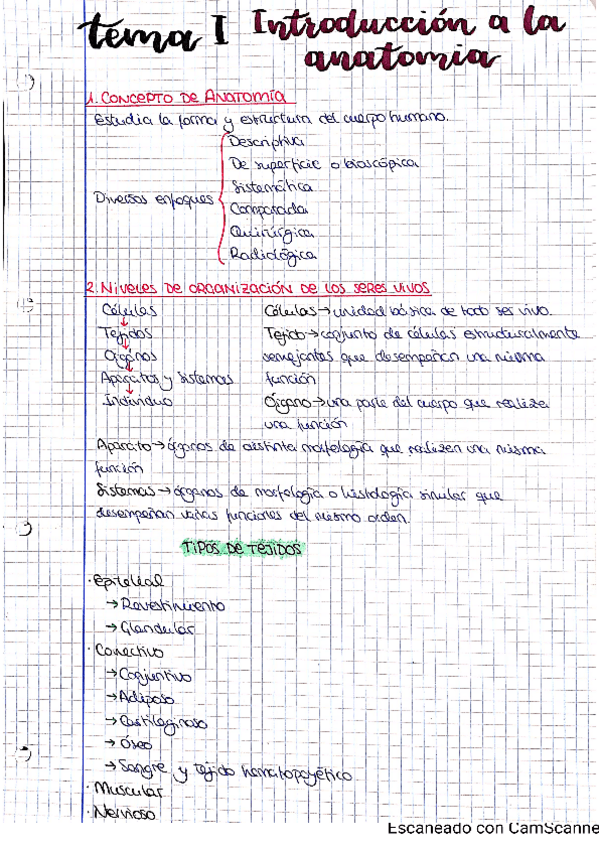 tema I Introducción a la
anatomia
1. CONCEPTO DE ANATOMÍA
Estudia la forma y estructura del cuerpo humano.
Descriptiva
De superficie o bioscópica
Sistemática
Diversos enfoques
Comparada
Quirúrgica
Radiológica
2. NIVELES DE ORGANIZACIÓN DE LOS SERES VIVOS
Células
Tejidos
Órganos
Aparatos y sistemas
Individuo
Células → unidad básica de todo ser vivo.
Tejido → conjunto de células estructuralmente
semejantes que desempeñan una misma
función
Órgano → una parte del cuerpo que realiza
una función
Aparato → órganos de distinta morfología que realizan una misma
función
Sistemas → órganos de morfología o histología similar que
desempeñan varias funciones del mismo orden.
TIPOS DE TEJIDOS
· Epitelial
→ Revestimiento
→ Glandular
· Conectivo
→ Conjuntivo
→ Adiposo
→ Cartilaginoso
→ Óseo
→ Sangre y tejido hematopoyético
· Muscular
· Nervioso
Escaneado con CamScanne